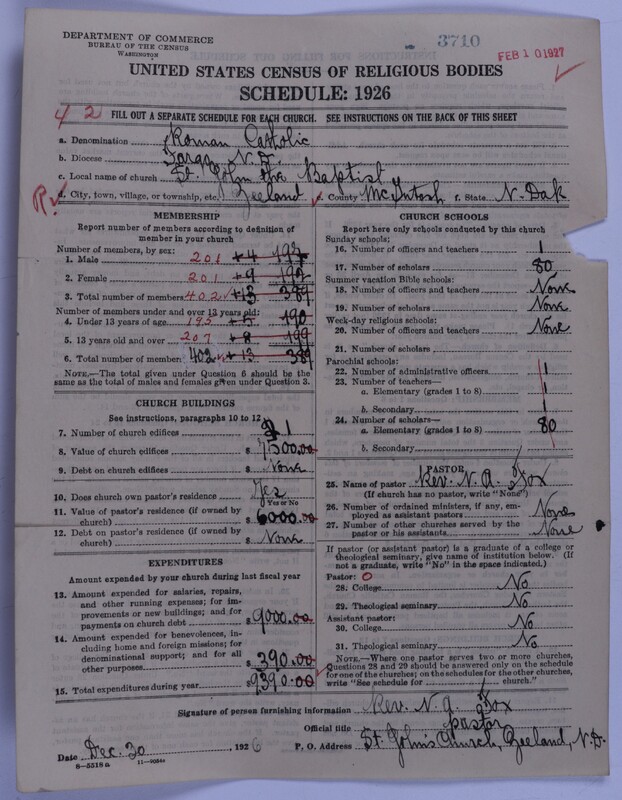 DEPARTMENT OF COMMERCE
BUREAU OF THE CENSUS
WASHINGTON
3710
FEB 10 1927
UNITED STATES CENSUS OF RELIGIOUS BODIES
SCHEDULE: 1926
42
FILL OUT A SEPARATE SCHEDULE FOR EACH CHURCH. SEE INSTRUCTIONS ON THE BACK OF THIS SHEET
a. Denomination Roman Catholic
b. Diocese Fargo N.D.
c. Local name of church St. John the Baptist
d. City, town, village, or township, etc. Zeeland e. County McIntosh f. State N. Dak
MEMBERSHIP
Report number of members according to definition of
member in your church
Number of members, by sex:
1. Male 201 +4 197
2. Female 201 +9 192
3. Total number of members 402 +13 389
Number of members under and over 13 years old:
4. Under 13 years of age 195 +5 190
5. 13 years old and over 207 +8 199
6. Total number of members 402 +13 389
NOTE.—The total given under Question 6 should be the
same as the total of males and females given under Question 3.
CHURCH BUILDINGS
See instructions, paragraphs 10 to 12
7. Number of church edifices 1
8. Value of church edifices $ 7500.00
9. Debt on church edifices $ None
10. Does church own pastor's residence Yes
Yes or No
11. Value of pastor's residence (if owned by
church) $ 6000.00
12. Debt on pastor's residence (if owned by
church) $ None
EXPENDITURES
Amount expended by your church during last fiscal year
13. Amount expended for salaries, repairs,
and other running expenses; for im-
provements or new buildings; and for
payments on church debt $ 9000.00
14. Amount expended for benevolences, in-
cluding home and foreign missions; for
denominational support; and for all
other purposes $ 390.00
15. Total expenditures during year $ 9390.00
CHURCH SCHOOLS
Report here only schools conducted by this church
Sunday schools:
16. Number of officers and teachers 1
17. Number of scholars 80
Summer vacation Bible schools:
18. Number of officers and teachers None
19. Number of scholars None
Week-day religious schools:
20. Number of officers and teachers None
21. Number of scholars
Parochial schools:
22. Number of administrative officers 1
23. Number of teachers—
a. Elementary (grades 1 to 8) 1
b. Secondary 1
24. Number of scholars—
a. Elementary (grades 1 to 8) 80
b. Secondary
PASTOR
25. Name of pastor Rev. N. A.
(If church has no pastor, write "None")
26. Number of ordained ministers, if any, em-
ployed as assistant pastors None
27. Number of other churches served by the
pastor or his assistants None
If pastor (or assistant pastor) is a graduate of a college or
theological seminary, give name of institution below. (If
not a graduate, write "No" in the space indicated.)
Pastor: 0
28. College No
29. Theological seminary No
Assistant pastor:
30. College No
31. Theological seminary No
NOTE.—Where one pastor serves two or more churches,
Questions 28 and 29 should be answered only on the schedule
for one of the churches; on the schedules for the other churches,
write "See schedule for church."
Signature of person furnishing information Rev. N. A.
Official title Pastor
Date Dec. 30 , 1926 P. O. Address St. John's Church, Zeeland, N.D.
6—5318a 11—9054a